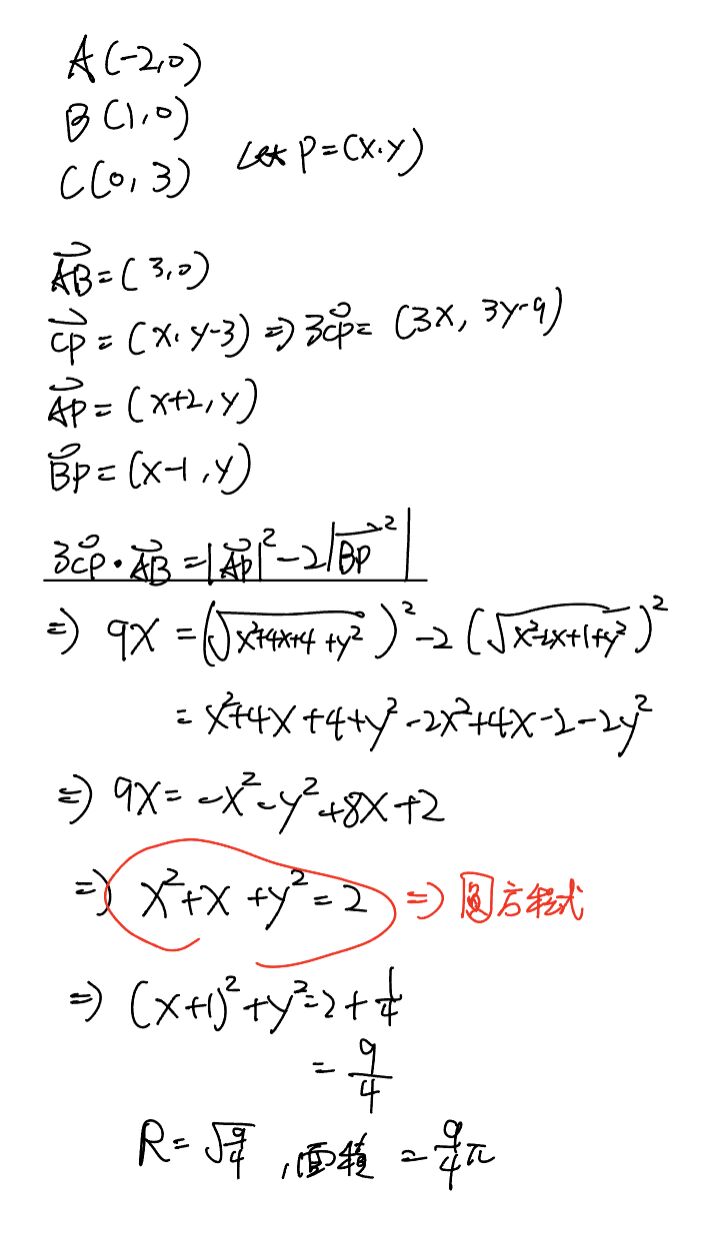 A(-2,0)
B(1,0)
C(0,3) Let P=(x,y)
\overrightarrow{AB}=(3,0)
\overrightarrow{CP}=(x,y-3) ⇒ 3\overrightarrow{CP}=(3x, 3y-9)
\overrightarrow{AP}=(x+2,y)
\overrightarrow{BP}=(x-1,y)
3\overrightarrow{CP}·\overrightarrow{AB}=|\overrightarrow{AP}|²-2|\overrightarrow{BP}²|
⇒ 9x=(√(x²+4x+4+y²))²-2(√(x²-2x+1+y²))²
=x²+4x+4+y²-2x²+4x-2-2y²
⇒ 9x=-x²-y²+8x+2
⇒ x²+x+y²=2 ⇒ 圓方程式
⇒ (x+1)²+y²=2+1/4
=9/4
R=√(9/4), 面積=9/4π